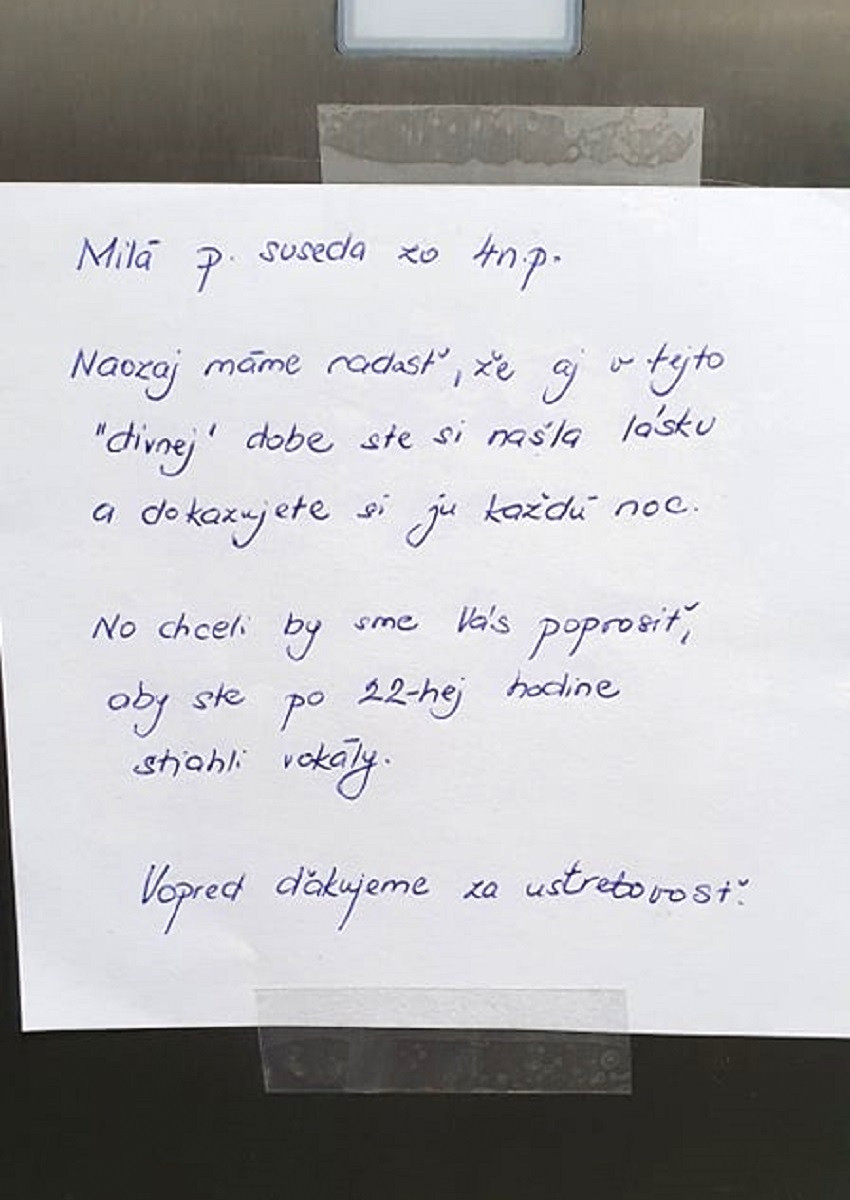 Milá p. suseda zo 4n.p.
Naozaj máme radosť, že aj v tejto
"divnej" dobe ste si našla lásku
a dokazujete si ju každú noc.
No chceli by sme Vás poprosiť,
aby ste po 22-hej hodine
stiahli vokály.
Vopred ďakujeme za ustretovosť.